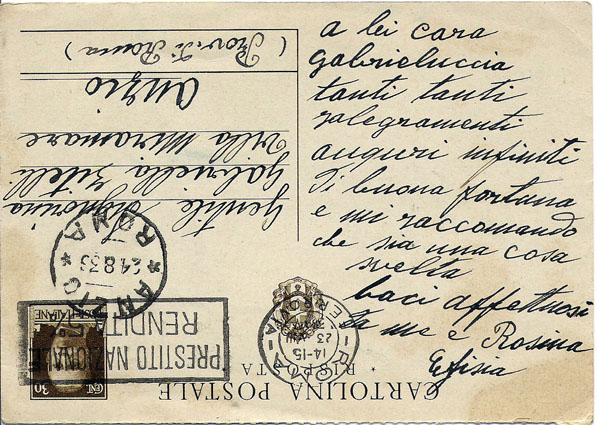 a lei cara
gabrieluccia
tanti tanti
ralegramenti
auguri infiniti
di buona fortuna
e mi raccomando
che sia una cosa
svelta
baci affettuosi
da me e Rosina
Efisia
CARTOLINA POSTALE
RISPOSTA
CENT 30
POSTE ITALIANE
PRESTITO NAZIONALE
RENDITA
ANZIO
ROMA
24.8.35
14-15
23
Gentile Signorina
Gabriella
Villa Miramare
Anzio
(Prov. di Roma)